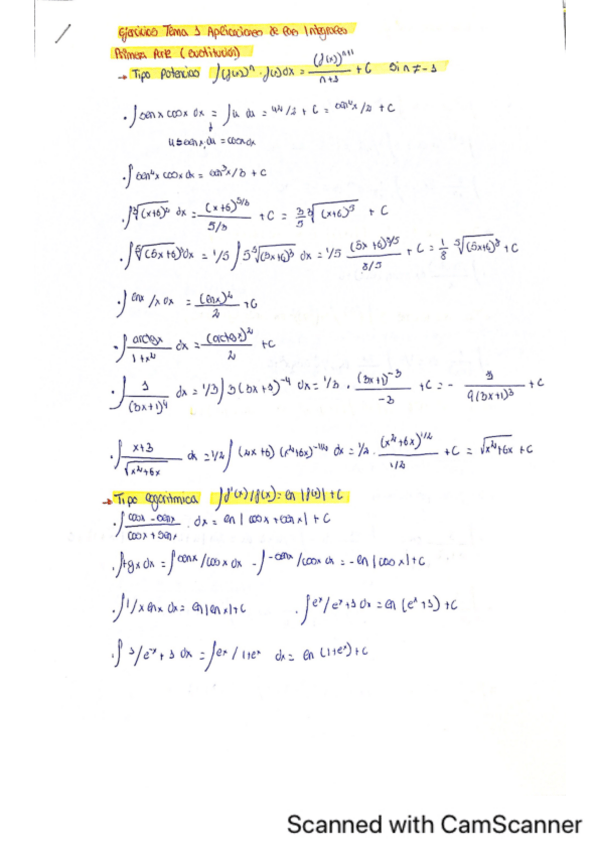 Ejercicios Tema 1 Aplicaciones de las Integrales
Primera Parte (sustitución)
→ Tipo Potencias ∫(f(x))ⁿ · f(x) dx = (f(x))ⁿ⁺¹ / n+1 + C Si n ≠ -1
· ∫ senx cosx dx = ∫u du = u²/2 + C = sen²x/2 + C
u = senx, du = cosx dx
· ∫ sen²x cosx dx = sen³x/3 + C
· ∫ ∛(x+6)² dx = (x+6)^5/3 / 5/3 + C = 3/5 ∛(x+6)⁵ + C
· ∫ ⁵√(5x+6)³ dx = 1/5 ∫ 5 ⁵√(5x+6)³ dx = 1/5 (5x+6)^8/5 / 8/5 + C = 1/8 ⁵√(5x+6)⁸ + C
· ∫ lnx /x dx = (lnx)² / 2 + C
· ∫ arctgx / 1+x² dx = (arctgx)² / 2 + C
· ∫ 1 / (3x+1)⁴ dx = 1/3 ∫ 3(3x+1)⁻⁴ dx = 1/3 · (3x+1)⁻³ / -3 + C = - 1 / 9(3x+1)³ + C
· ∫ x+3 / √x²+6x dx = 1/2 ∫ (2x+6) (x²+6x)^-1/2 dx = 1/2 · (x²+6x)^1/2 / 1/2 + C = √x²+6x + C
→ Tipo logarítmica ∫ f'(x)/f(x) = ln |f(x)| + C
· ∫ cosx - senx / cosx + senx · dx = ln | cosx + senx | + C
· ∫ tgx dx = ∫ senx /cosx dx - ∫ -senx /cosx dx = - ln | cosx | + C
· ∫ 1/x lnx dx = ln |lnx| + C · ∫ eˣ/eˣ+1 dx = ln (eˣ+1) + C
· ∫ 1/e⁻ˣ + 1 dx = ∫ eˣ / 1+eˣ dx = ln (1+eˣ) + C
Scanned with CamScanner